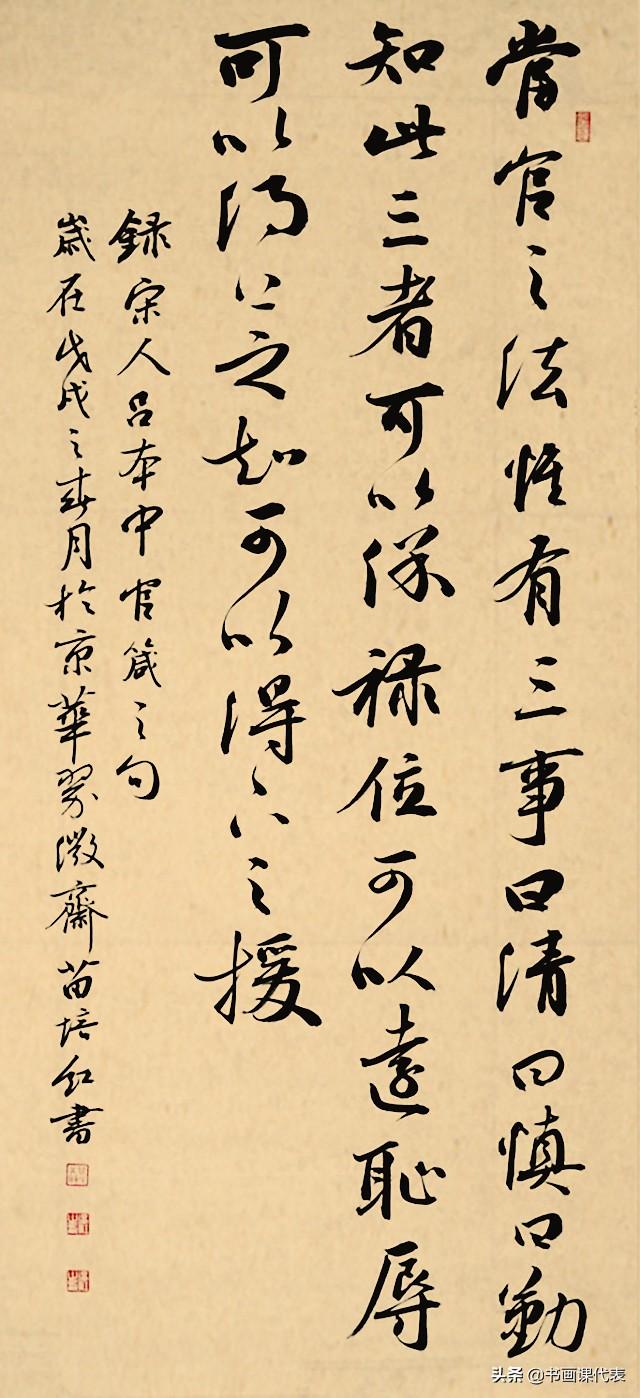 當官之法惟有三事曰清曰慎曰勤
知此三者可以保禄位可以遠恥辱
可以得上之知可以得下之援
録宋人呂本中官箴之句
歲在戊戌之春月於京華翠微齋苗培紅書
头条 @书画课代表